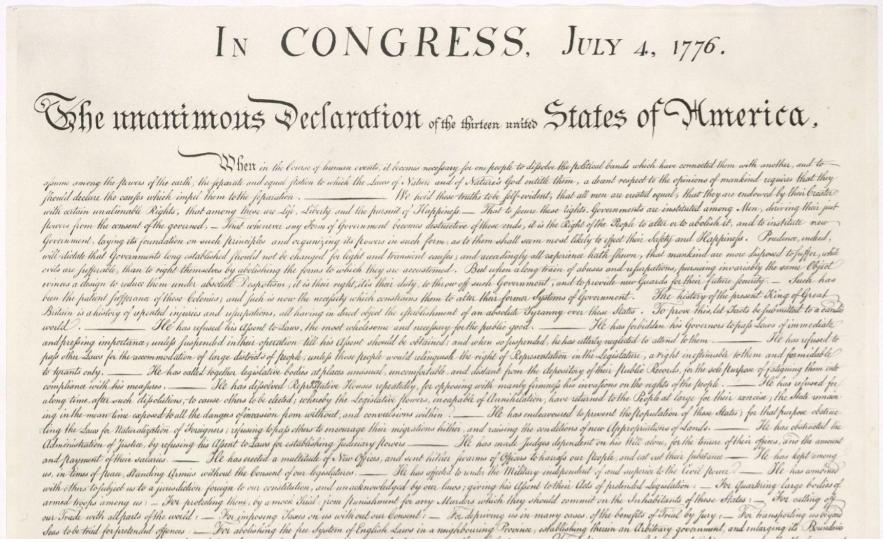 In CONGRESS, July 4, 1776.
The unanimous Declaration of the thirteen united States of America,
When in the Course of human events, it becomes necessary for one people to dissolve the political bands which have connected them with another, and to
assume among the powers of the earth, the separate and equal station to which the Laws of Nature and of Nature's God entitle them, a decent respect to the opinions of mankind requires that they
should declare the causes which impel them to the separation. — We hold these truths to be self-evident, that all men are created equal, that they are endowed by their Creator
with certain unalienable Rights, that among these are Life, Liberty and the pursuit of Happiness — That to secure these rights, Governments are instituted among Men, deriving their just
powers from the consent of the governed, — That whenever any Form of Government becomes destructive of these ends, it is the Right of the People to alter or to abolish it, and to institute new
Government, laying its foundation on such principles and organizing its powers in such form, as to them shall seem most likely to effect their Safety and Happiness. Prudence, indeed,
will dictate that Governments long established should not be changed for light and transient causes; and accordingly all experience hath shewn, that mankind are more disposed to suffer, while
evils are sufferable, than to right themselves by abolishing the forms to which they are accustomed. But when a long train of abuses and usurpations, pursuing invariably the same Object
evinces a design to reduce them under absolute Despotism, it is their right, it is their duty, to throw off such Government, and to provide new Guards for their future security. — Such has
been the patient sufferance of these Colonies; and such is now the necessity which constrains them to alter their former Systems of Government. The history of the present King of Great
Britain is a history of repeated injuries and usurpations, all having in direct object the establishment of an absolute Tyranny over these States. To prove this, let Facts be submitted to a candid
world. — He has refused his Assent to Laws, the most wholesome and necessary for the public good. — He has forbidden his Governors to pass Laws of immediate
and pressing importance, unless suspended in their operation till his Assent should be obtained; and when so suspended, he has utterly neglected to attend to them. — He has refused to
pass other Laws for the accommodation of large districts of people, unless those people would relinquish the right of Representation in the Legislature, a right inestimable to them and formidable
to tyrants only. — He has called together legislative bodies at places unusual, uncomfortable, and distant from the depository of their public Records, for the sole purpose of fatiguing them into
compliance with his measures. — He has dissolved Representative Houses repeatedly, for opposing with manly firmness his invasions on the rights of the people. — He has refused for
a long time, after such dissolutions, to cause others to be elected; whereby the Legislative powers, incapable of Annihilation, have returned to the People at large for their exercise; the State remain
ing in the mean time exposed to all the dangers of invasion from without, and convulsions within. — He has endeavoured to prevent the population of these States; for that purpose obstruc
ting the Laws for Naturalization of Foreigners; refusing to pass others to encourage their migrations hither, and raising the conditions of new Appropriations of Lands. — He has obstructed the
Administration of Justice, by refusing his Assent to Laws for establishing Judiciary powers. — He has made Judges dependent on his Will alone, for the tenure of their offices, and the amount
and payment of their salaries. — He has erected a multitude of New Offices, and sent hither swarms of Officers to harrass our people, and eat out their substance. — He has kept among
us, in times of peace, Standing Armies without the Consent of our legislatures. — He has affected to render the Military independent of and superior to the Civil power. — He has combined
with others to subject us to a jurisdiction foreign to our constitution, and unacknowledged by our laws; giving his Assent to their Acts of pretended Legislation: — For Quartering large bodies of
armed troops among us: — For protecting them, by a mock Trial, from punishment for any Murders which they should commit on the Inhabitants of these States: — For cutting off
our Trade with all parts of the world: — For imposing Taxes on us without our Consent: — For depriving us in many cases, of the benefits of Trial by Jury: — For transporting us beyond
Seas to be tried for pretended offences: — For abolishing the free System of English Laws in a neighbouring Province, establishing therein an Arbitrary government, and enlarging its Boundaries